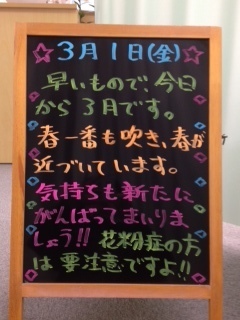 ☆3月1日(金)☆
早いもので、今日
から3月です。
春一番も吹き、春が
近づいています。
気持ちも新たに
がんばってまいりま
しょう!! 花粉症の方
は要注意ですよ!!